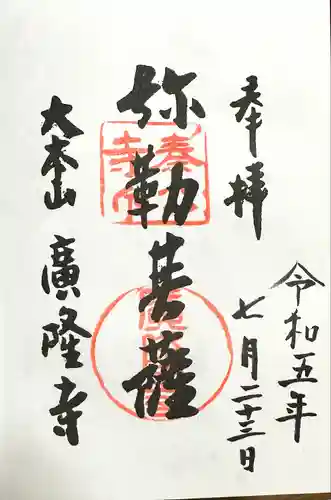 奉拝
令和五年
七月二十三日
弥勒菩薩
大本山 廣隆寺